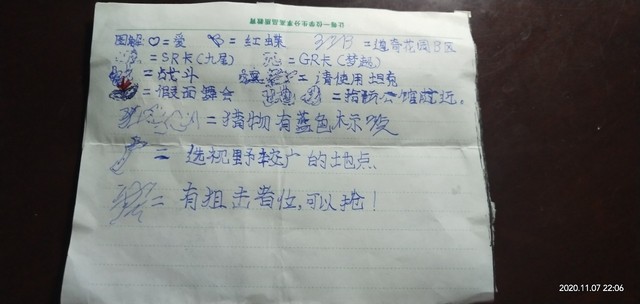 让每一位学生分享高品质教育
图解♡=爱 =红蝶 =道奇花园B区
=SR卡(九尾) =GR卡(梦魇)
=战斗 =请使用坦克
=假面舞会 =指 附近。
=猎物有蓝色 示
=选视野较广的地点
=有狙击者位,可以抢!
2020.11.07 22:06